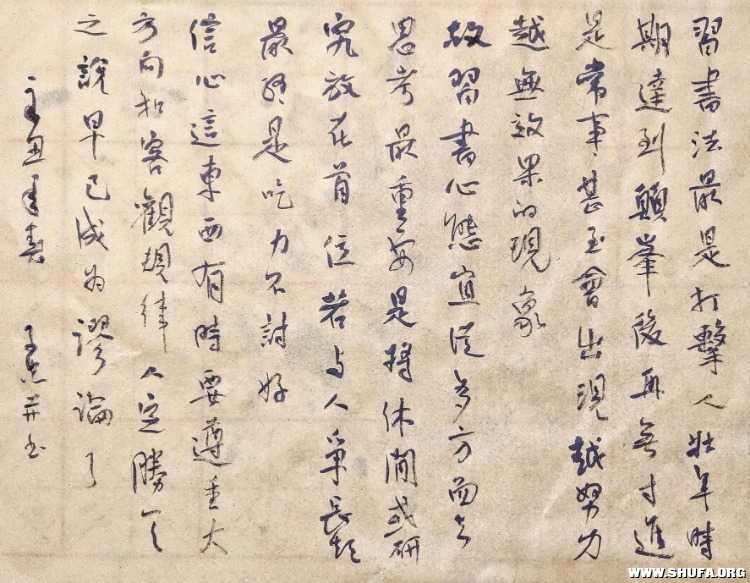 習書法最是打擊人壯年時
期達到顛峯後再無寸進
是常事甚至會出現越努力
越無效果的現象
故習書心態宜從多方面去
思考最重要是將休閒或研
究放在首位若与人爭長短
最終是吃力不討好
信心這東西有時要遵重大
方向和客觀規律人定勝天
之說早已成为謬論了
辛丑年春
并书
WWW.SHUFA.ORG